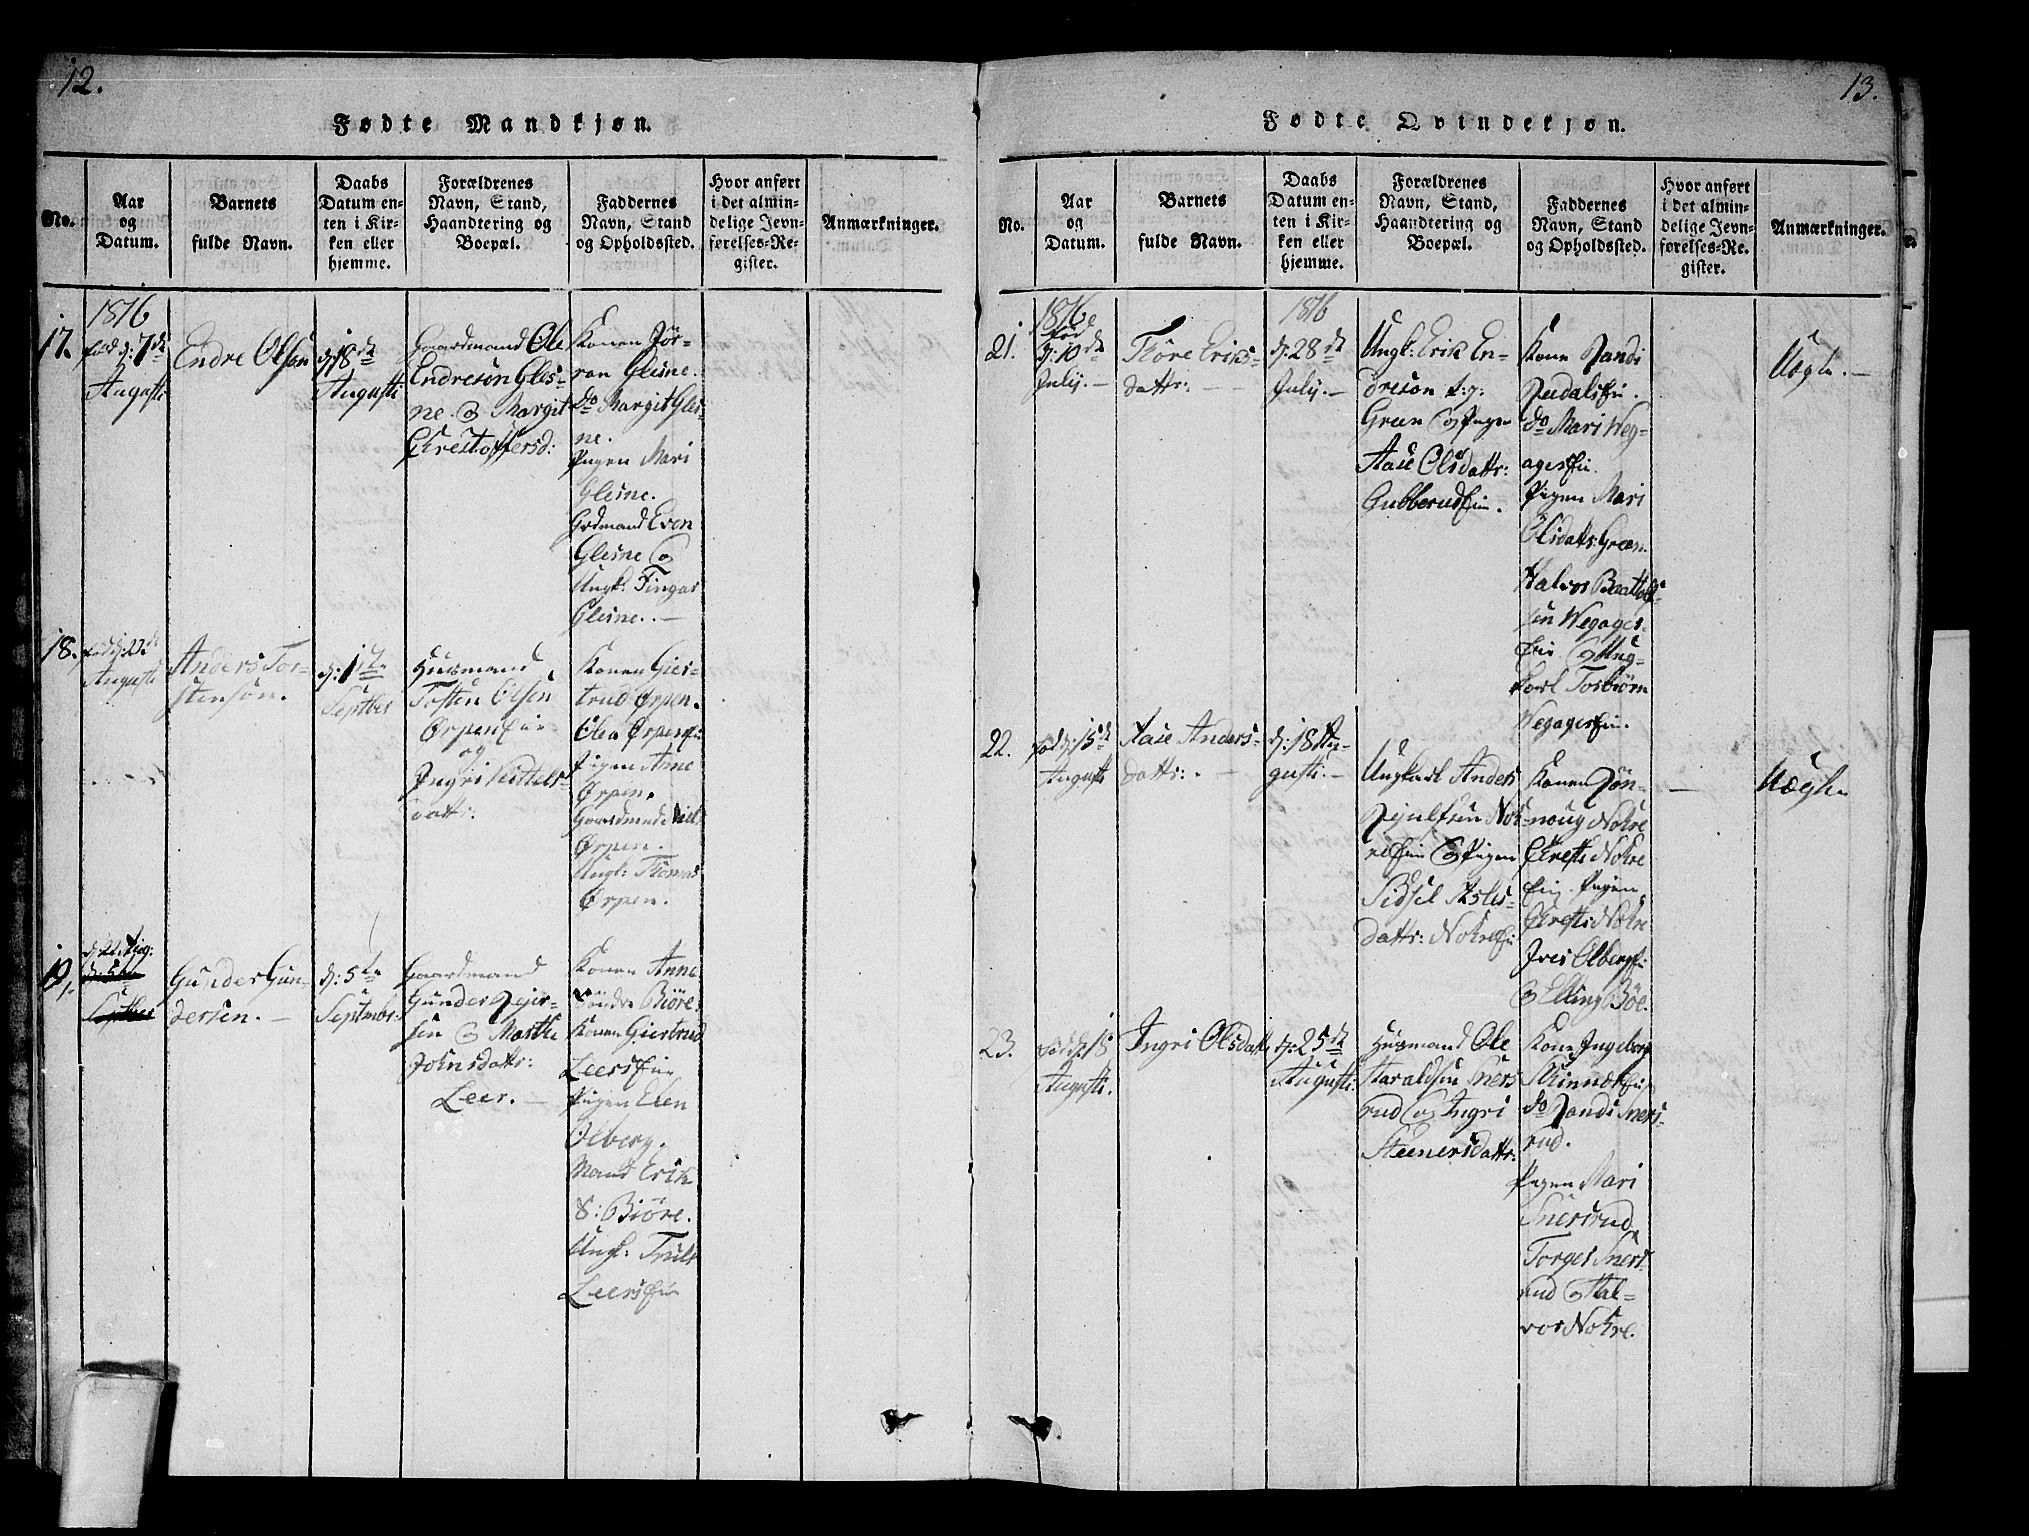 12.
Fødte Mandkjøn.
No.
Aar
og
Datum.
Barnets
fulde Navn.
Daabs
Datum en-
ten i Kir-
ken eller
hjemme.
Forældrenes
Navn, Stand,
Haandtering og
Boepæl.
Faddernes
Navn, Stand
og Opholdssted.
Hvor anført
i det almin-
delige Jevn-
førelses-Re-
gister.
Anmærkninger.
17.
1816
fød d: 7de
Augusti
Endre Olsen
d: 18de
Augusti
Gaardmand Ole
Endresøn Gles-
ne. og Margit
Christoffersd:
Konen Jør-
ran Glesne.
do Margit Gles-
ne.
Pigen Mari
Glesne.
Grdmand Even
Glesne og
Ungk: Fingar
Glesne. —
18.
fød d: 22de
Augusti
Anders Tor-
stensøn.
d: 1te
Septber
Husmand
Tosten Olsen
Ørpen Eie
og
Ingri Kittels-
datt:
Konen Gier-
trud Ørpen.
Olea Ørpen Eie
Pigen Anne
Ørpen.
Gaardmand Niels
Ørpen.
Ungk: Thomas
Ørpen.
19.
d: 22 Aug:
d: 5te
Septber
Gunder Gun-
dersen. —
d: 5te
Septmbr:
Gaardmand
Gunder Reier-
sen og Marthe
Johnsdattr:
Leer. —
Konen Anne
Søndre Biøre
Konen Giertrud
Leers Eie
Pigen Elen
Olberg.
Mand Erik
S: Biøre.
Ungk: Truls
Leers Eie
13.
Fødte Qvindekjøn.
No.
Aar
og
Datum.
Barnets
fulde Navn.
Daabs
Datum en-
ten i Kir-
ken eller
hjemme.
Forældrenes
Navn, Stand,
Haandtering og
Boepæl.
Faddernes
Navn, Stand
og Opholdssted.
Hvor anført
i det almin-
delige Jevn-
førelses-Re-
gister.
Anmærkninger.
21.
1816
fød
d: 10de
July. —
Thore Eriks-
dattr: —
1816
d: 28de
July. —
Ungk: Erik En-
dresøn
Green og Pigen
Aase Olsdattr:
Gubberud Eie.
Kone Randi
Rudals Eie.
do Mari Weg-
agers Eie.
Pigen Mari
Olsdattr: Green.
Halvor
sen Wegagers-
Eie og Ung-
karl Torbiørn
Wegagers Eie.
Uægte. —
22.
fød d: 15de
Augusti
Aase Anders-
dattr: —
d: 18 Au-
gusti. —
Ungkarl Anders
Nok-
re Eie og Pigen
Sidsel Asles-
dattr: Nokre Eie
Konen Røn-
noug Nokre
Chresti Nokre
Eie. Pigen
Chresti Nokre
Iver Olberg Eie
og Elling Böe.
—
Uægte
23.
fød d: 18
Augusti.
Ingri Olsdattr
d: 25de
Augusti.
Husmand Ole
Haraldsen Sners-
rud og Ingri
Steenersdattr:
Kone Ingeborg
Skinnes Eie
do Randi Sners-
rud.
Pigen Mari
Snersrud
Torger Sners-
rud og Hal-
vor Nokre.